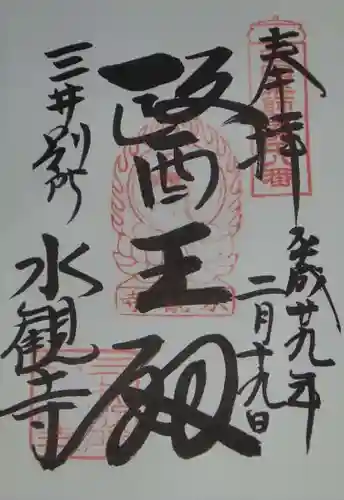 奉拝
平成廿九年
二月十九日
醫王殿
三井別所
水観寺